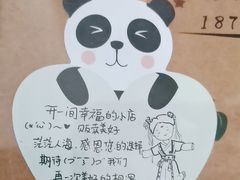 187
开一间幸福的小店
(*'ω')~♥ 贩卖美好
茫茫人海，感恩您的选择
期待(づ ̄ 3 ̄)づ我们
再一次美好的相遇